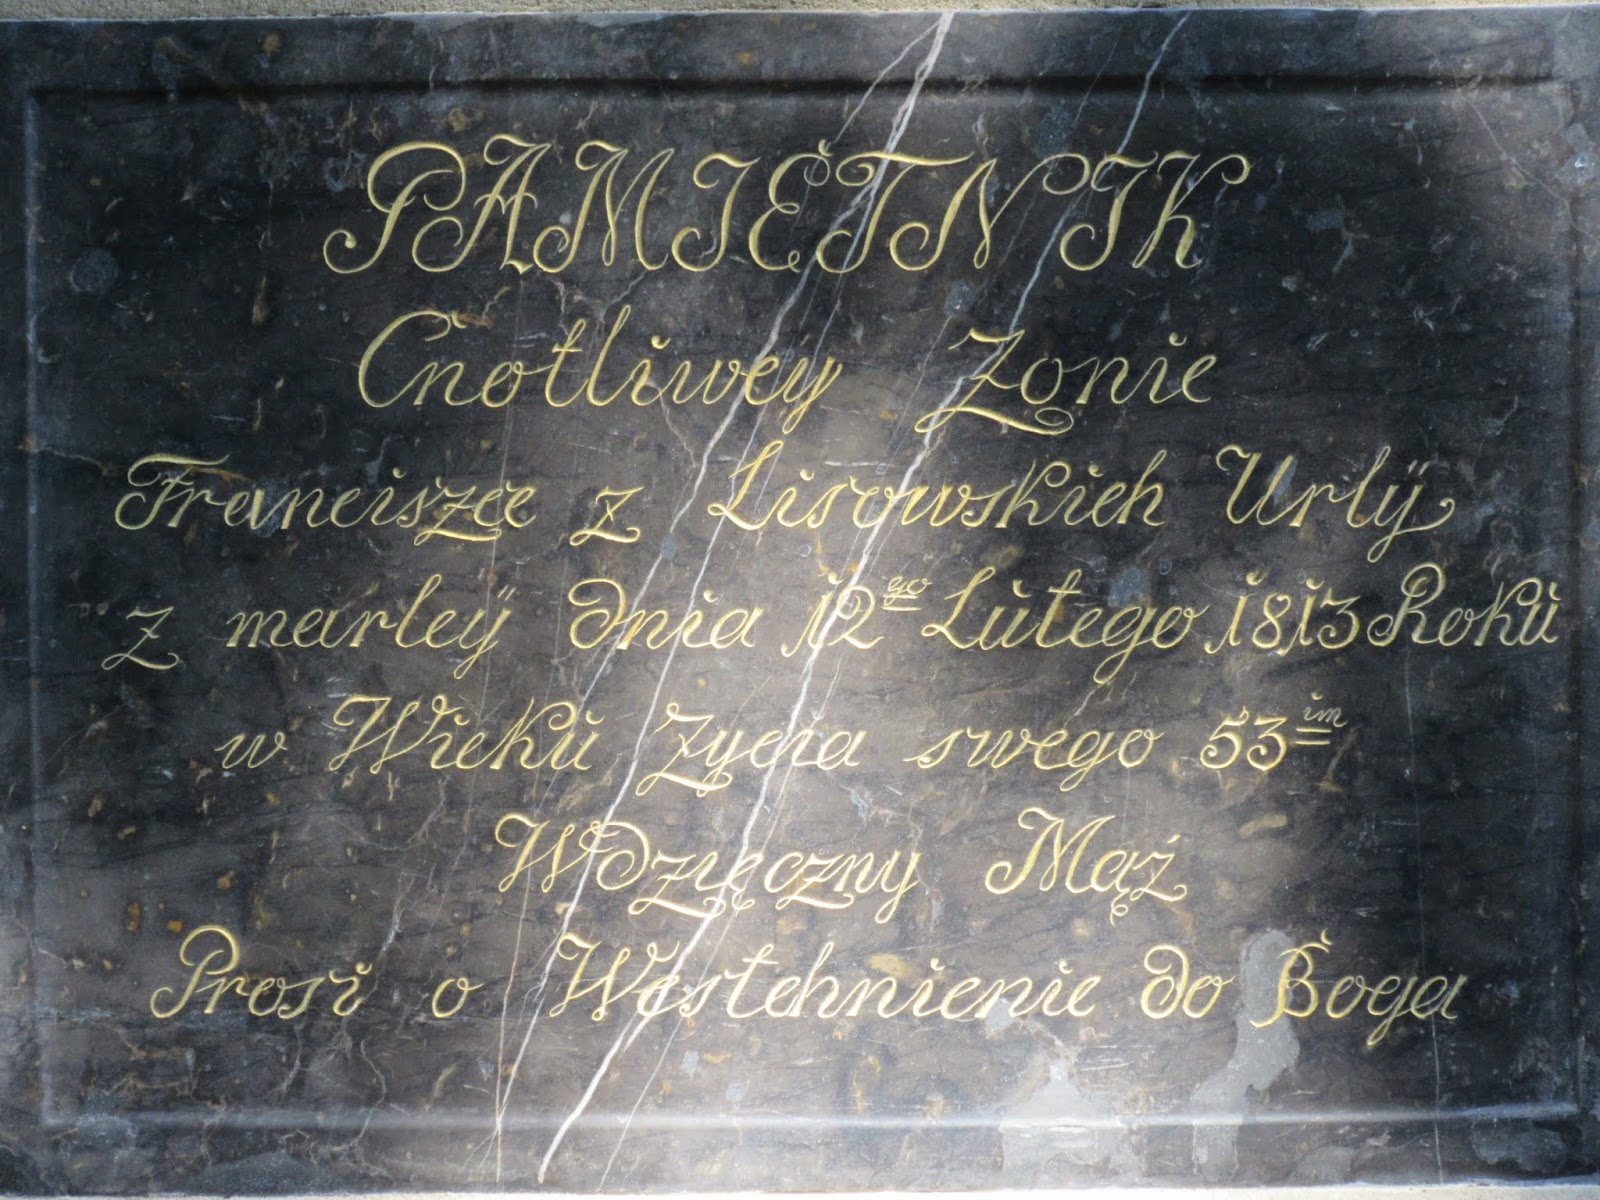 PAMIĘTNIK
Cnotliwey Zonie
Franciszce z Lisowskich Urlÿ
z marleÿ dnia 12go Lutego 1813 Roku
w Wieku Zycia swego 53im
Wdzięczny Mąż
Prosi o Westchnienie do Boga